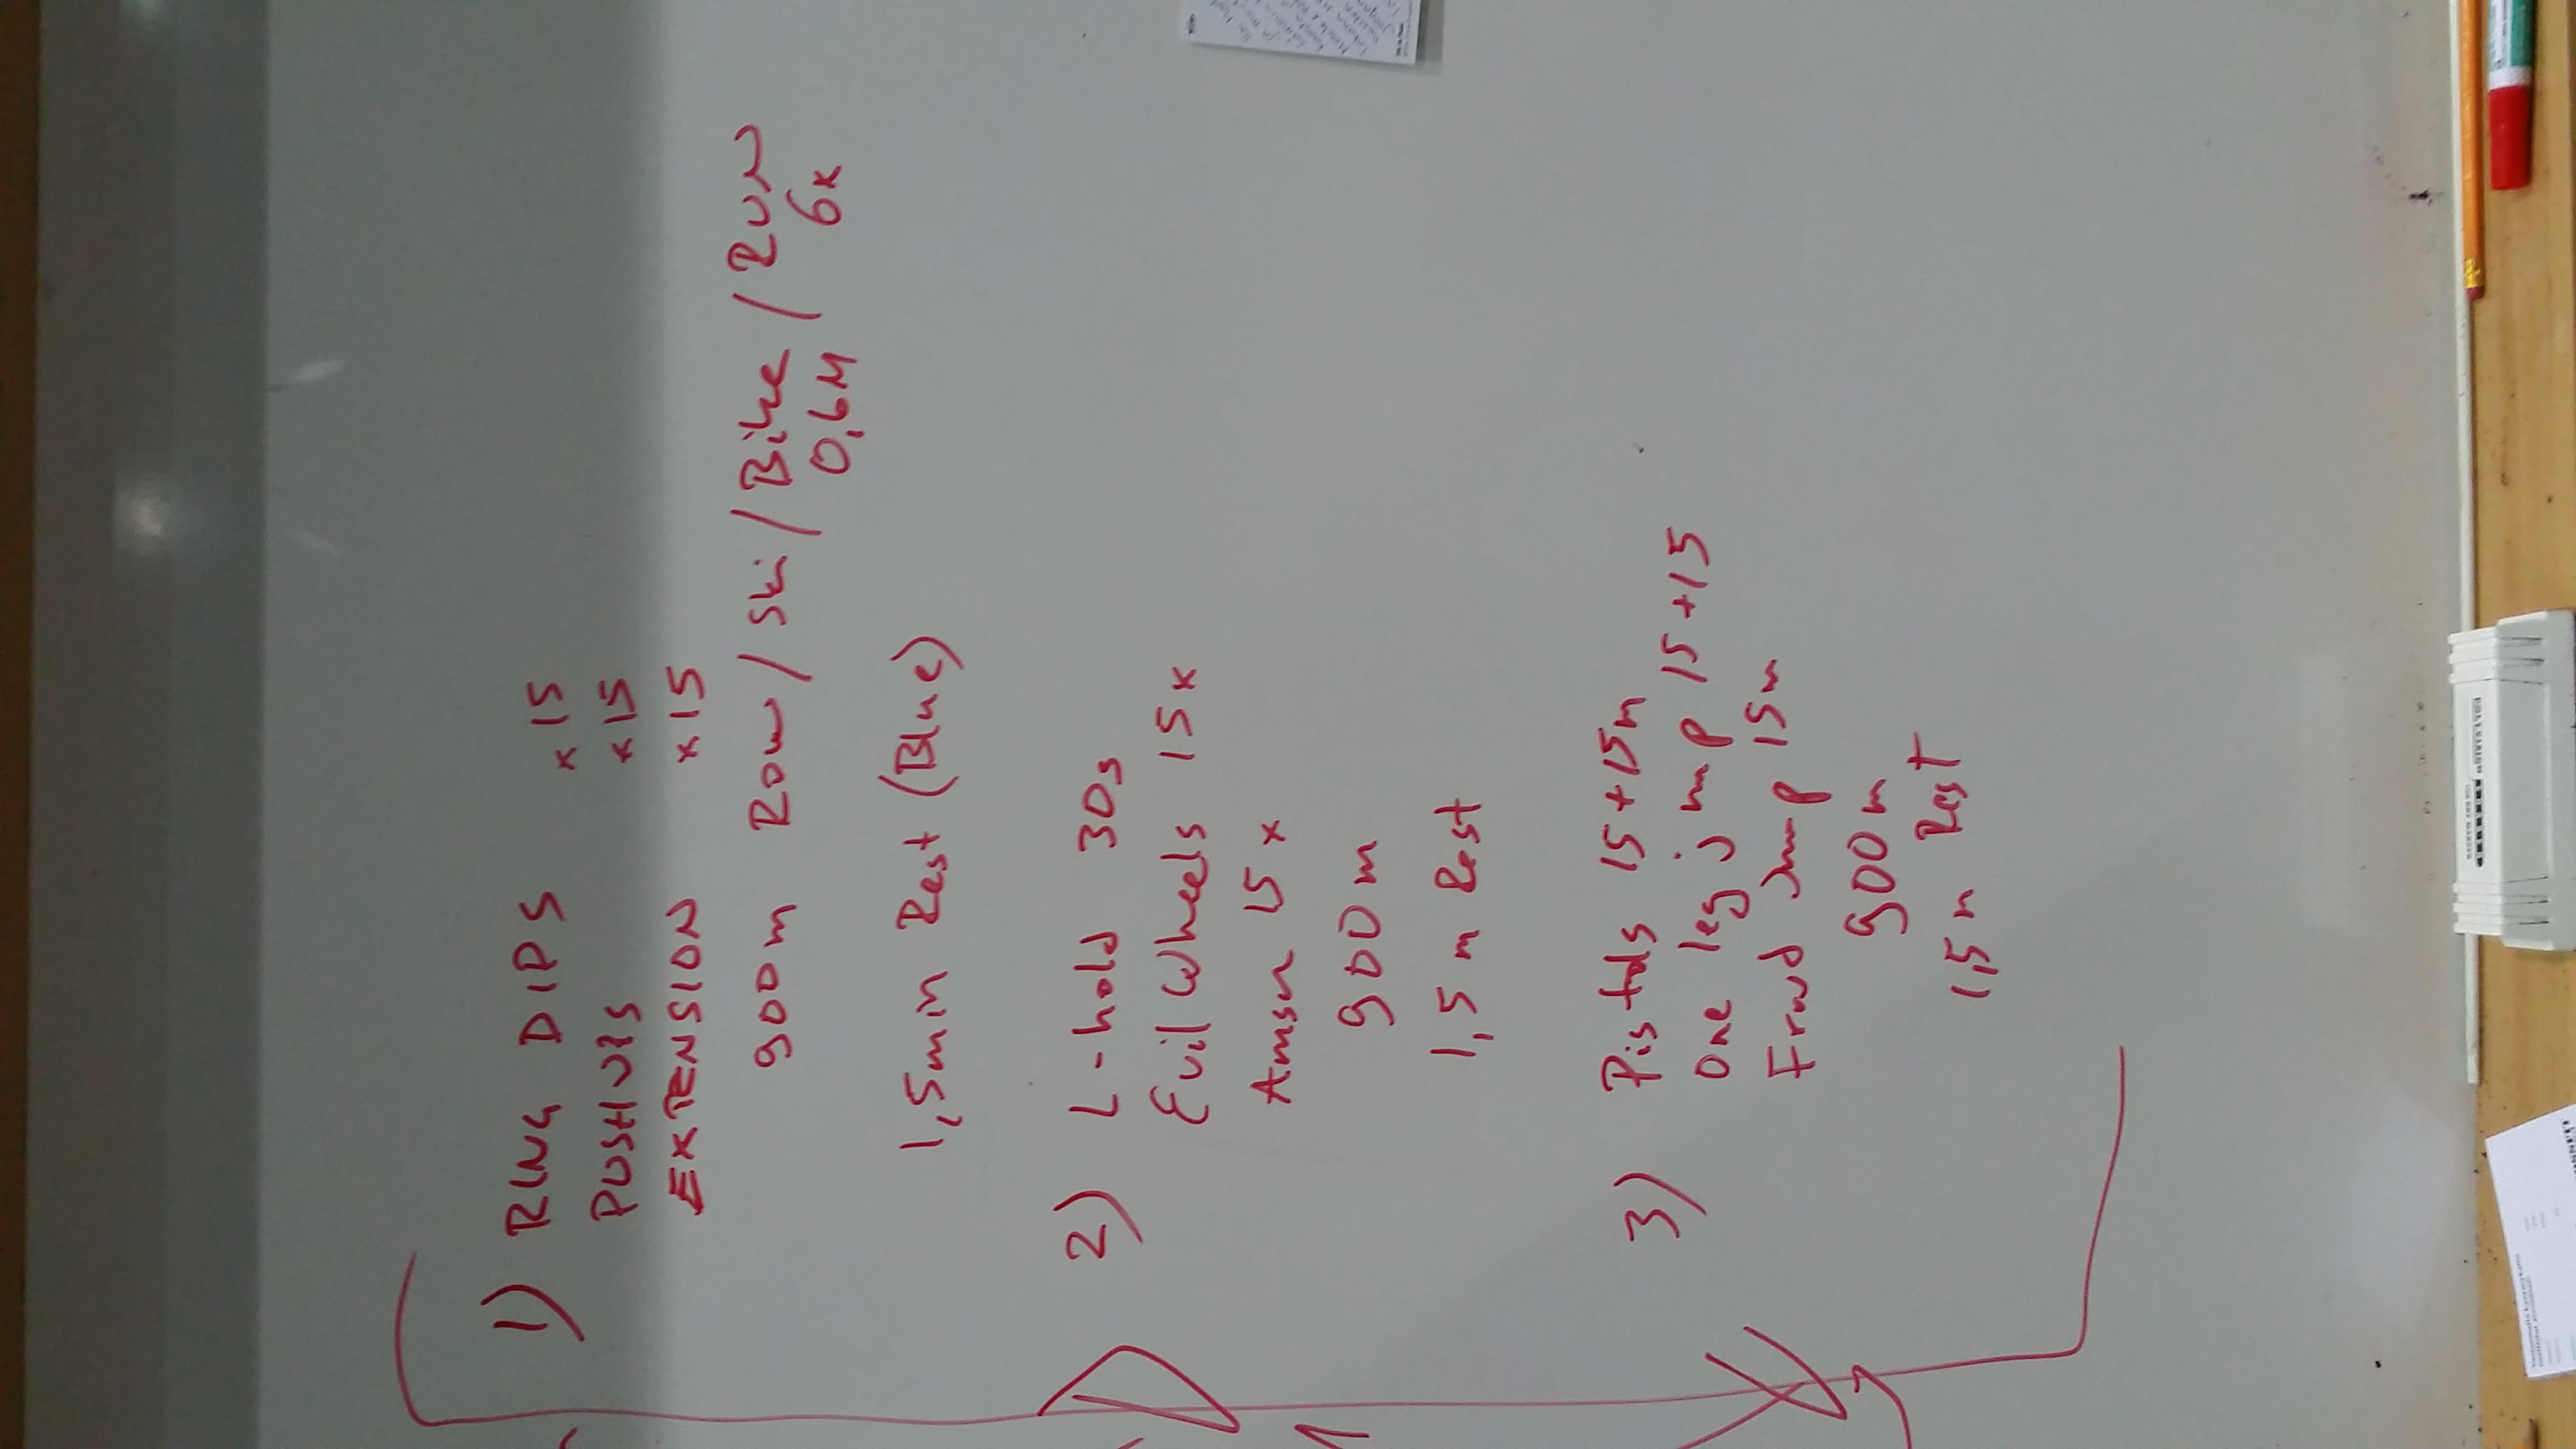 1) RING DIPS x15
PUSHUPS x15
EXTENSION x15
900m Row / Ski / Bike / RUN
0,6M 6x
1,5min Rest (Blue)
2) L-hold 30s
Evil Wheels 15x
15x
900m
1,5m Rest
3) Pistols 15+15m
One leg jump 15+15
jump 15m
900m
1,5m Rest